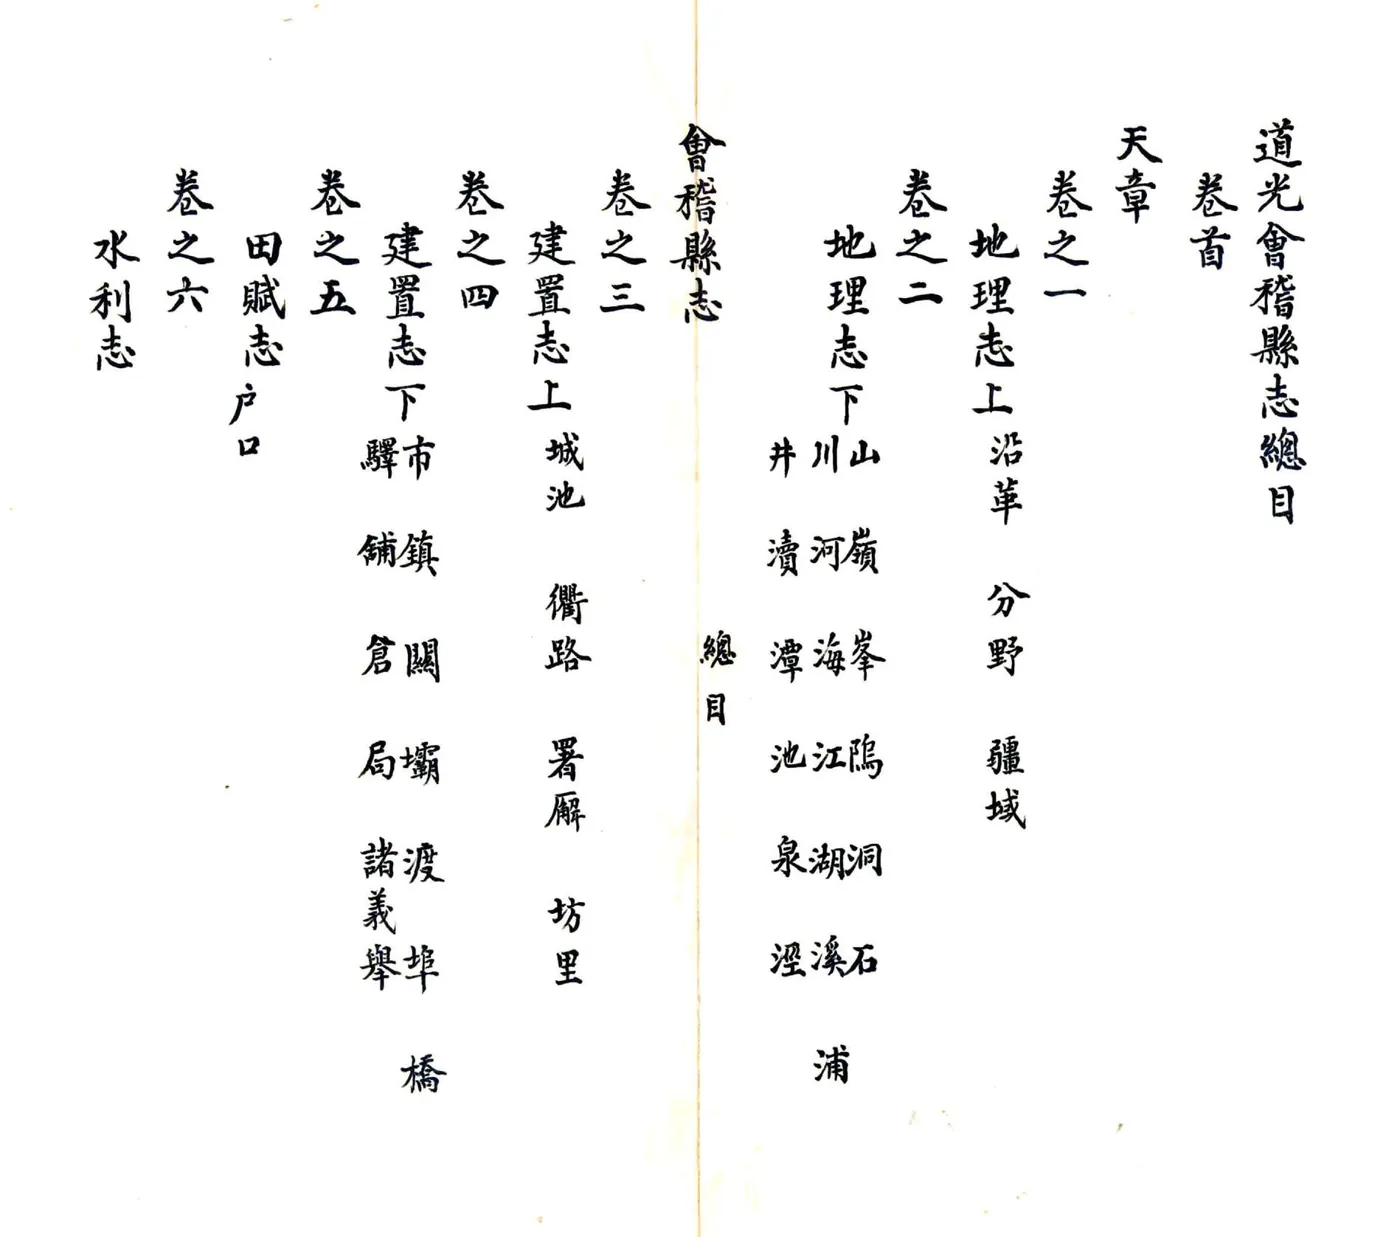 道光會稽縣志總目
卷首
天章
卷之一
地理志上 沿革 分野 疆域
卷之二
地理志下 山 嶺 峯 隖 洞 石
川 河 海 江 湖 溪 浦
井 瀆 潭 池 泉 涇
會稽縣志 總目
卷之三
建置志上 城池 衢路 署廨 坊里
卷之四
建置志下 市 鎮 關 壩 渡 埠 橋
驛 舖 倉 局 諸義舉
卷之五
田賦志 户口
卷之六
水利志